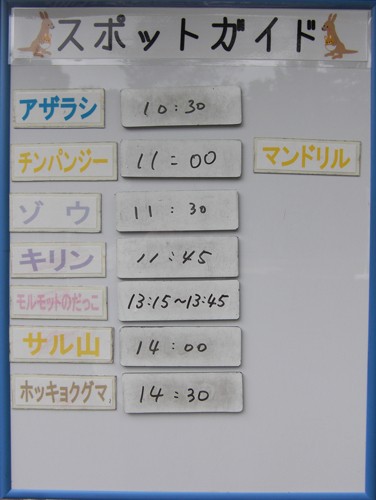 スポットガイド
アザラシ 10:30
チンパンジー 11:00 マンドリル
ゾウ 11:30
キリン 11:45
モルモットのだっこ 13:15~13:45
サル山 14:00
ホッキョクグマ 14:30